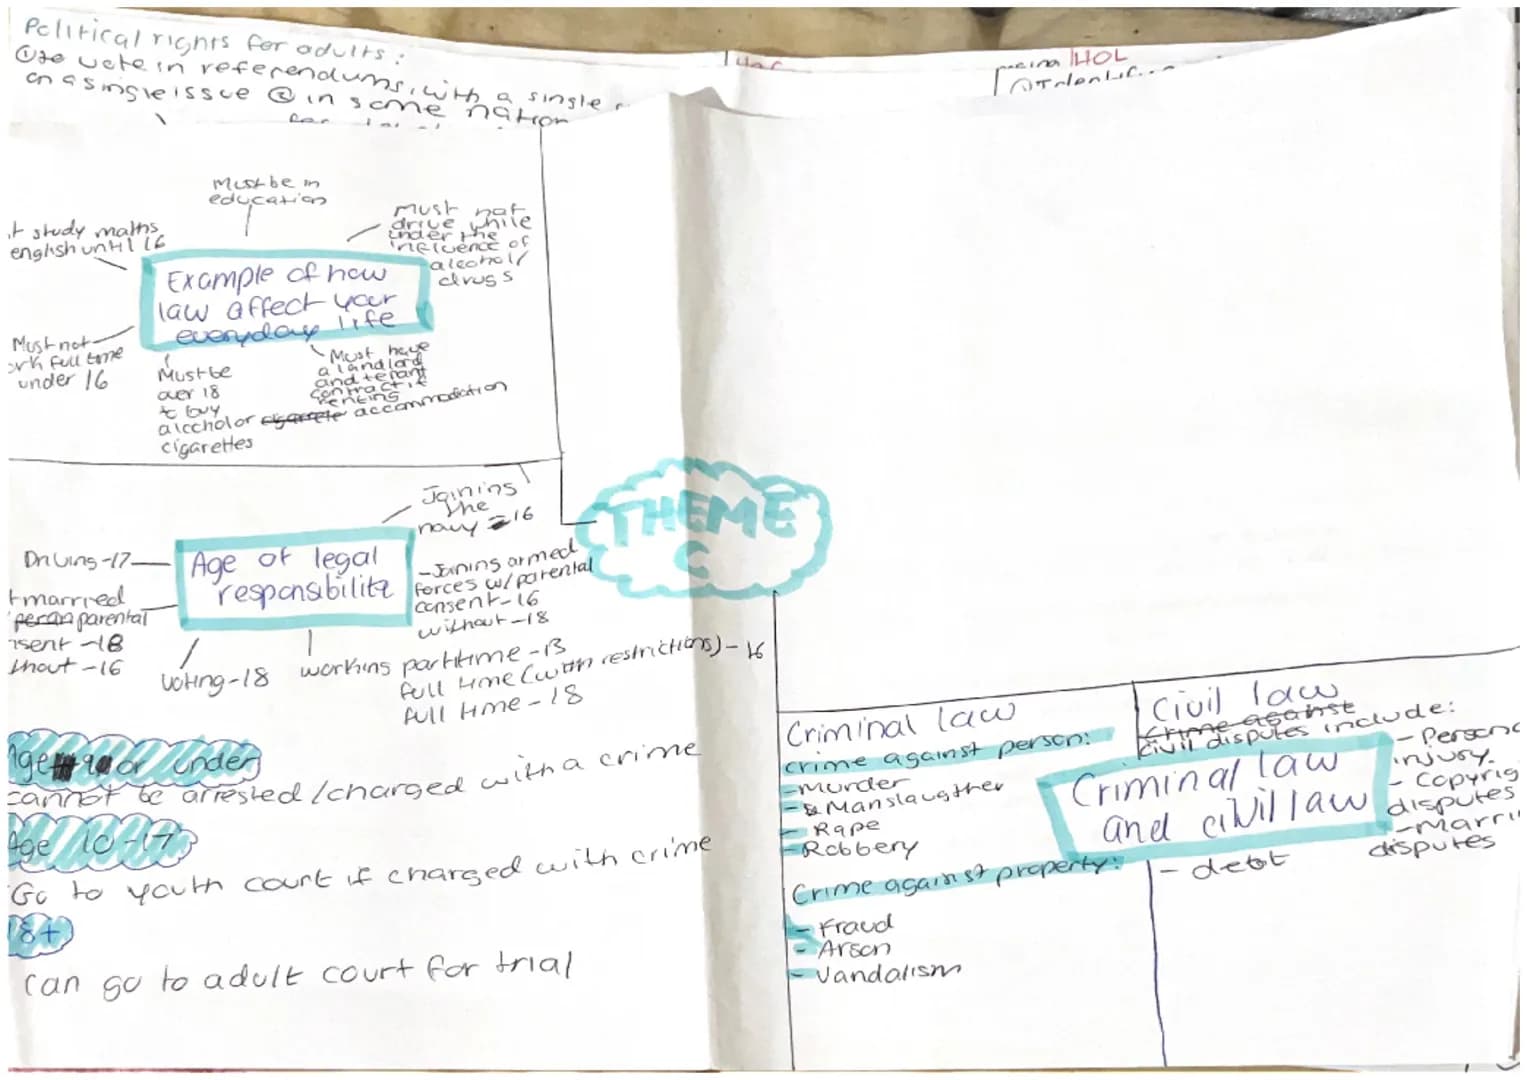 Political rights for adults:
on a single issue ② in some nation
HOL
Must be in
education
t study maths
english until 16
Must not
drive while
under the
influence of
alcohol/
drugs
Example of how
law affect your
everyday life
Must not
ork full time
under 16
Must be
over 18
to buy
alcohol or
cigarettes
Must have
a landlord
and tenant
contract if
renting
accommodation
THEME
C
Joining
the
navy 16
Driving -17
Age of legal
responsibilite
- Joining armed
forces w/ parental
consent - 16
without - 18
t married
parental
nsent - 18
thout - 16
Voting - 18
working part time - 13
full time (with restrictions) - 16
full time - 18
Age or under
cannot be arrested/charged with a crime
Age 10-17
Go to youth court if charged with crime
18+
can go to adult court for trial
Criminal law
crime against person:
- Murder
- Manslaugther
- Rape
- Robbery
Crime against property:
- Fraud
- Arson
- Vandalism
Civil law
Crime against
civil disputes include:
- Persona
injury.
- Copyrig
disputes
- marri
disputes
Criminal law
and civil law
- debt